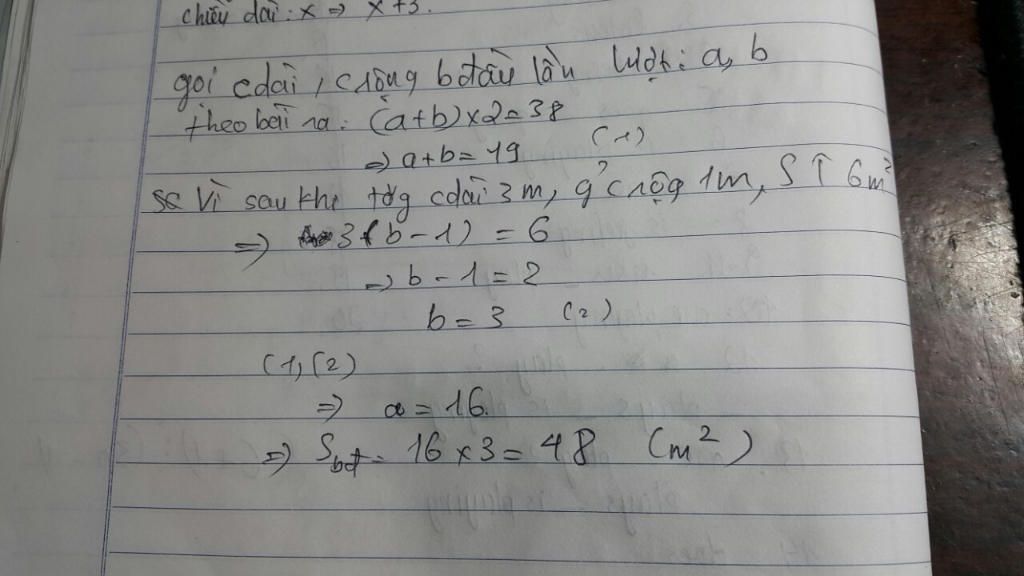 chiều dài: x => x+3.
gọi cdài, crộng bđầu lần lượt: a, b
theo bài ra: (a+b)x2=38
=> a+b=19 (1)
Vì sau khi tăg cdài 3m, g² crộg 1m, S ↑ 6m²
=> 3(b-1) = 6
=> b-1=2
b=3 (2)
(1,(2)
=> a=16.
=> Sbđ= 16x3=48 (m²)